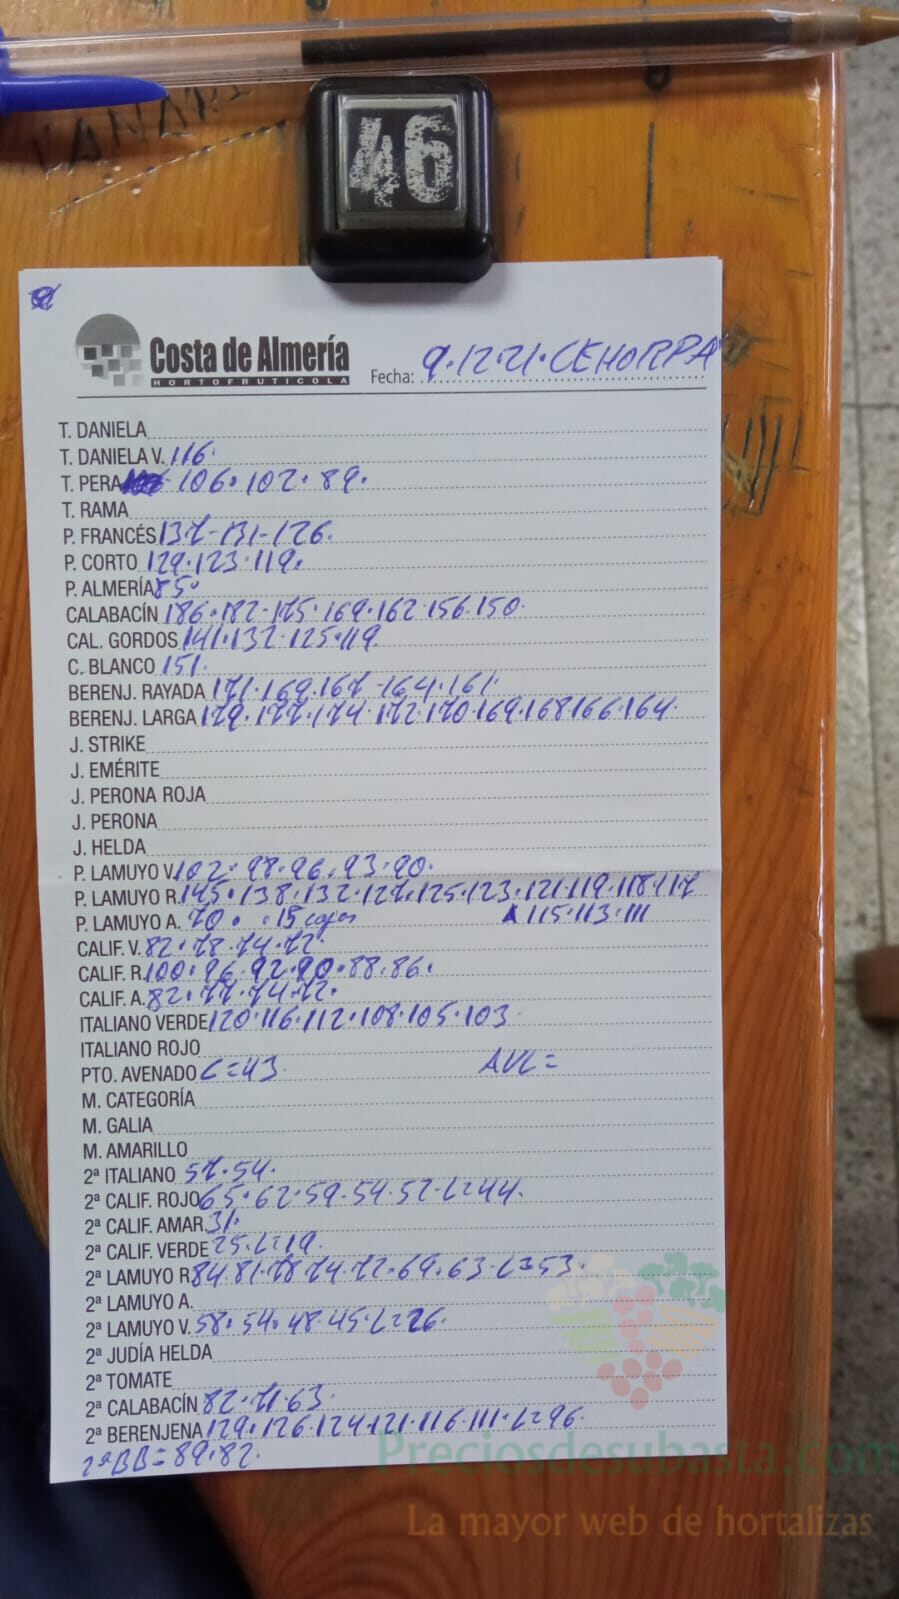 46
Costa de Almería
HORTOFRUTICOLA
Fecha: 9.12.21. CEHORPA
T. DANIELA
T. DANIELA V. 116.
T. PERA 106. 102. 89.
T. RAMA
P. FRANCÉS 137-131-126.
P. CORTO 129.123.119.
P. ALMERÍA 85.
CALABACÍN 186.182-175.169.162.156.150.
CAL. GORDOS 141.132.125.119.
C. BLANCO 151.
BERENJ. RAYADA 171.169.167-164.161.
BERENJ. LARGA 179.177.174.172.170.169.168.166.164.
J. STRIKE
J. EMÉRITE
J. PERONA ROJA
J. PERONA
J. HELDA
P. LAMUYO V. 102. 98.96.93.90.
P. LAMUYO R. 145.138.132.127.125.123.121.119.118.117
P. LAMUYO A. 70. 15 cajas 115.113.111
CALIF. V. 82.78.74.72.
CALIF. R. 100.96.92.90.88.86.
CALIF. A. 82.77.74.72.
ITALIANO VERDE 120.116.112.108.105.103
ITALIANO ROJO
PTO. AVENADO C=43. AVL=
M. CATEGORÍA
M. GALIA
M. AMARILLO
2ª ITALIANO 57.54.
2ª CALIF. ROJO 65.62.59.54.52-L=44.
2ª CALIF. AMAR. 31.
2ª CALIF. VERDE 25.L=19.
2ª LAMUYO R 84.81.78.74.72.69.63.L=53.
2ª LAMUYO A.
2ª LAMUYO V. 58.54.48.45.L=26.
2ª JUDÍA HELDA
2ª TOMATE
2ª CALABACÍN 82.71.63.
2ª BERENJENA 129.126.124.121.116.111.L=96.
2ª BB=89.82.
Preciosdesubasta.com
La mayor web de hortalizas